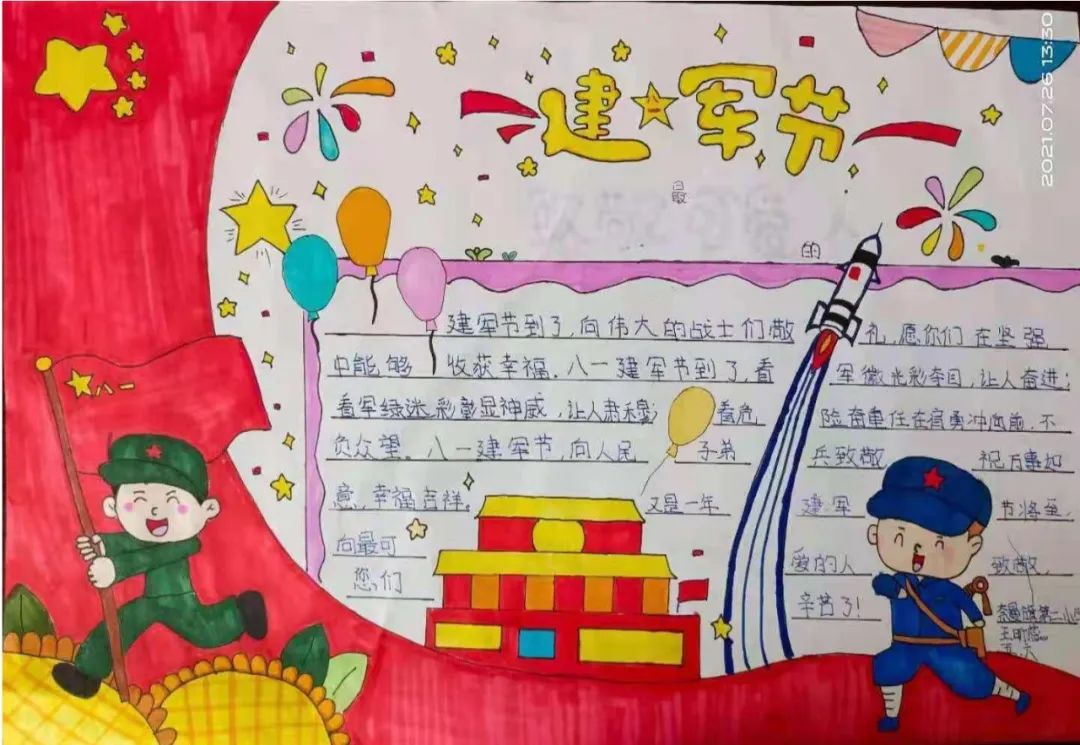 2021.07.26 13:30
建八一军节
最
的
八一
建军节到了,向伟大的战士们敬礼,愿你们在坚强
中能够收获幸福。八一建军节到了,看军徽光彩夺目,让人奋进;
看军绿迷彩彰显神威,让人肃穆;看危险奋重任在肩勇冲血前,不
负众望。八一建军节,向人民子弟兵致敬祝万事如
意,幸福吉祥。又是一年建军节将至,
向最可爱的人致敬,
您们辛苦了!
奈曼旗第二小
五、六